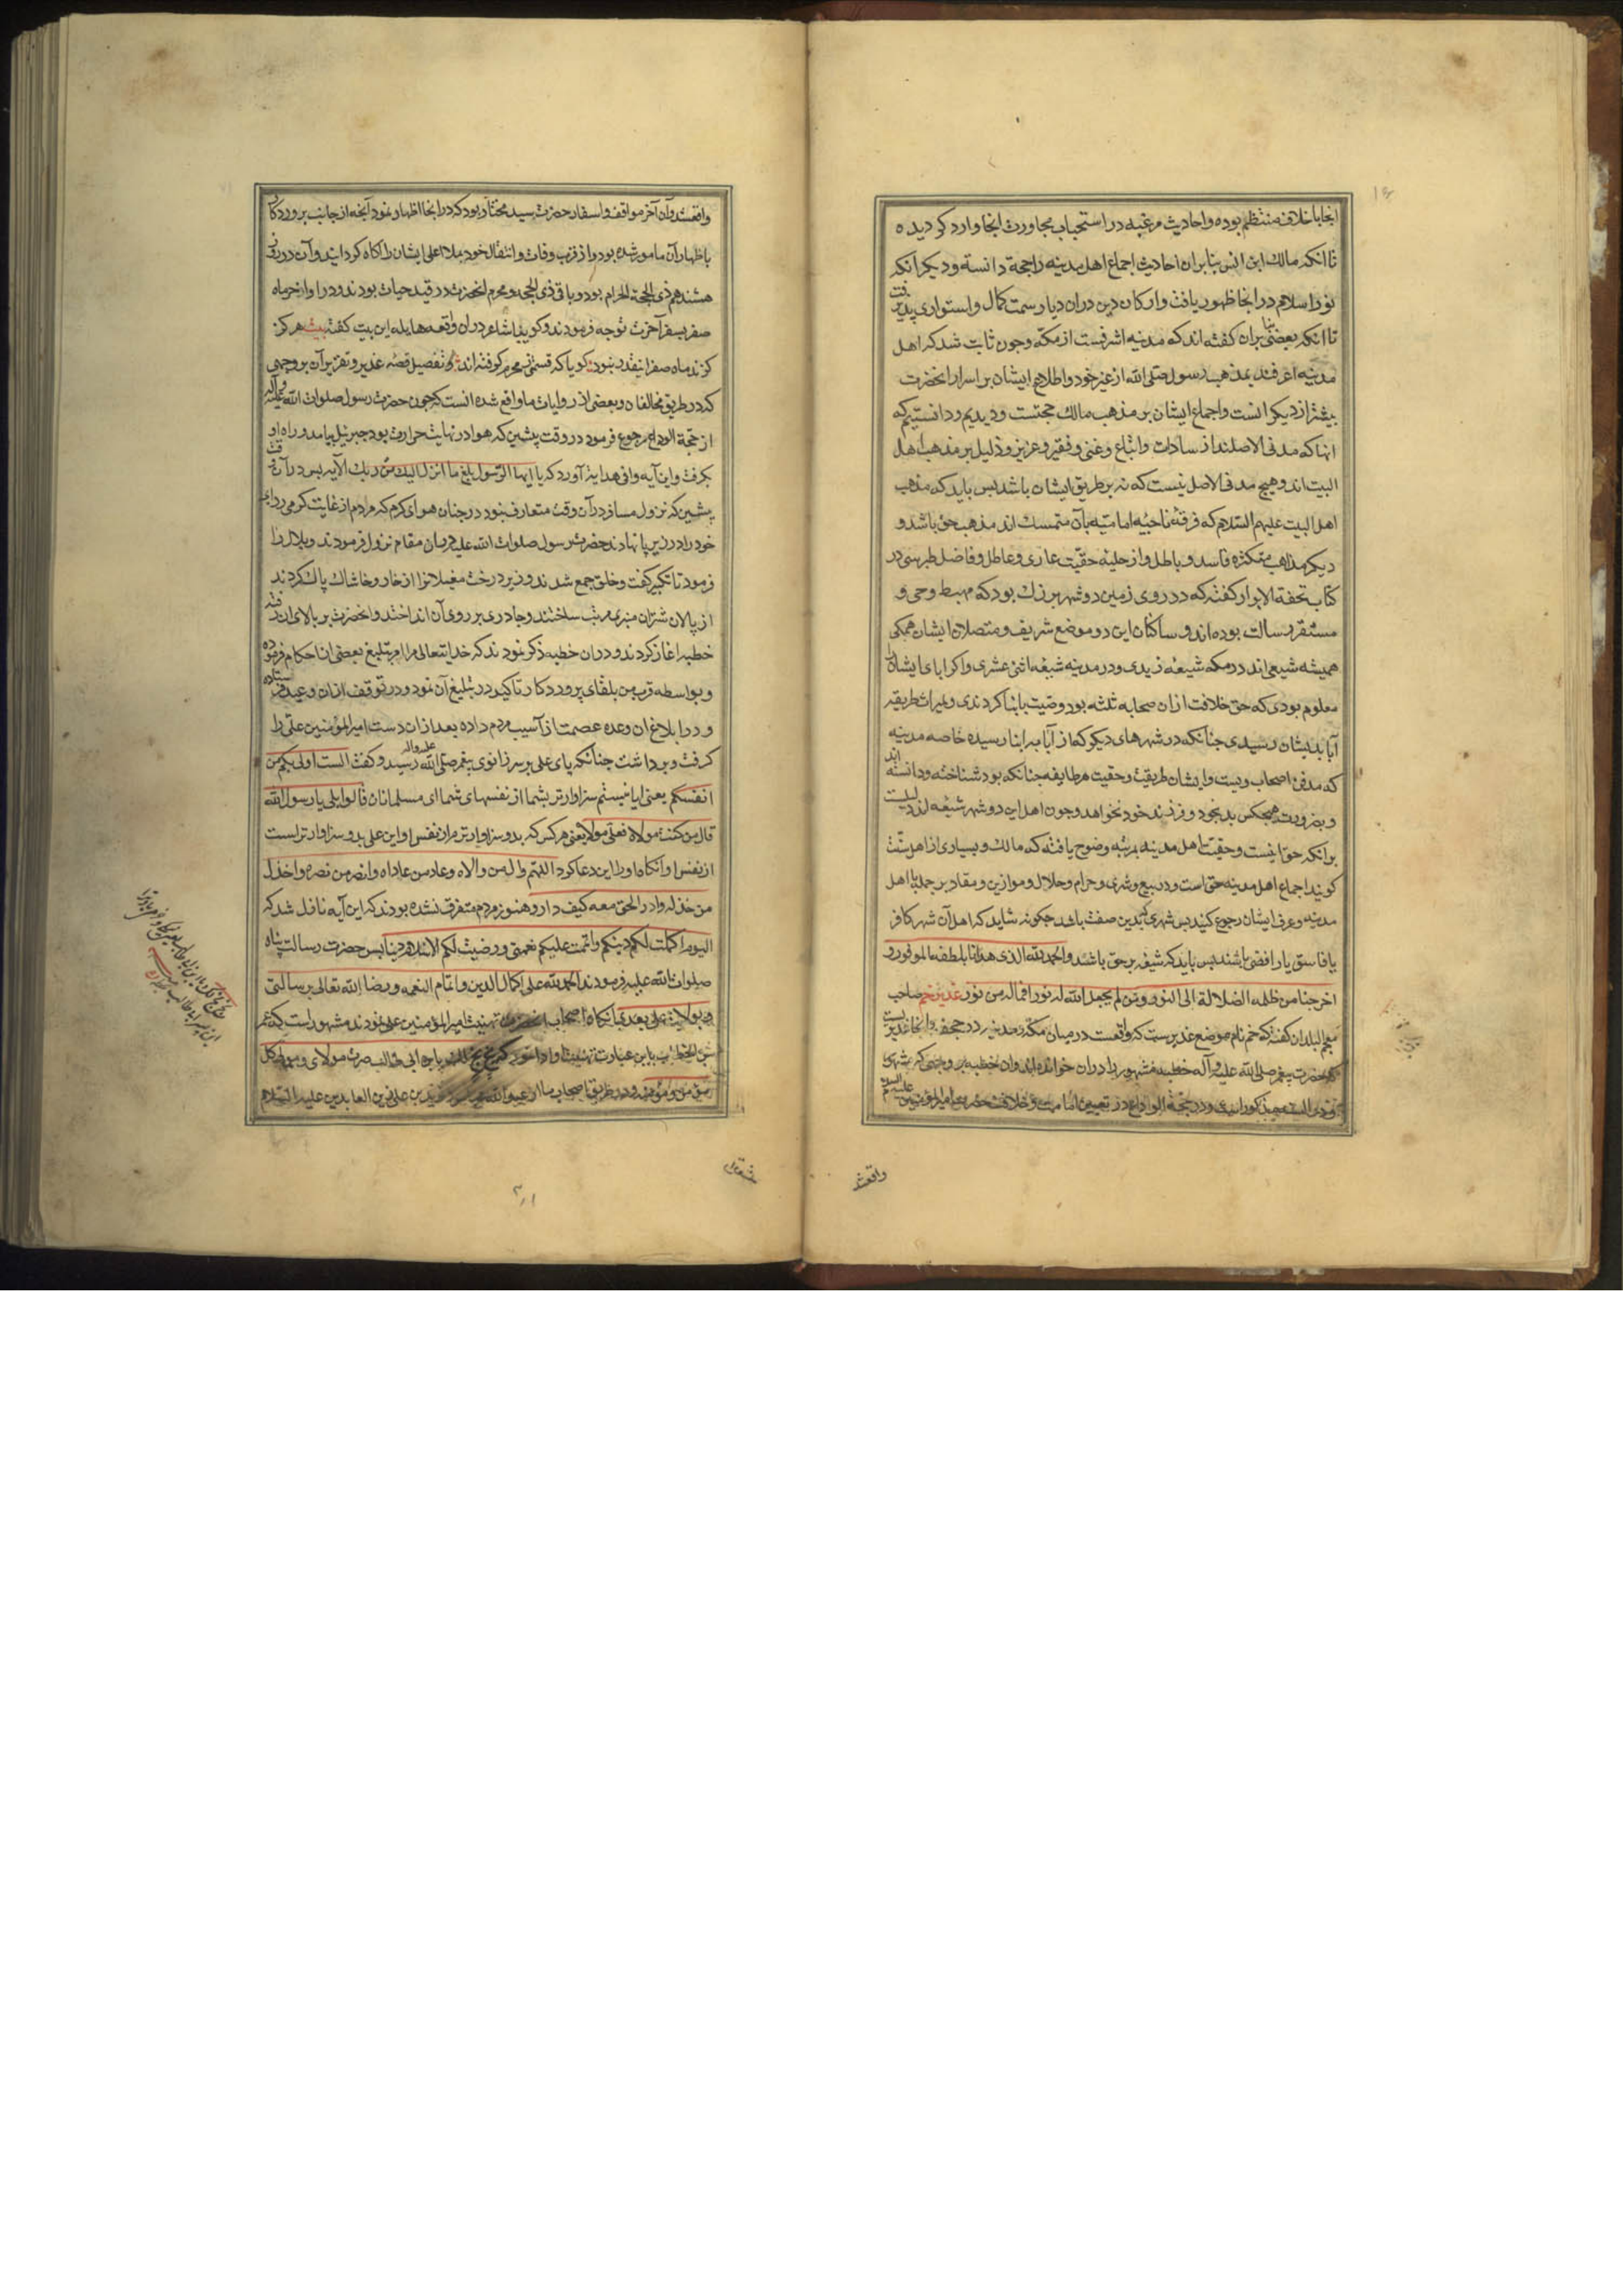 انجا با خلاف منتظم بوده و احادیث مرغبه در استحباب مجاورت انجا وارد کردیده
تا انکه مالک ابن انس بنابران احادیث اجماع اهل مدینه را حجة دانسته و دیکر انکه
نور اسلام در انجا ظهور یافت و ارکان دین دران دیار سمت کمال و استواری پذیرفت
تا انکه بعضی بنا بران کفته اند که مدینه اشرفست از مکه و چون ثابت شد که اهل
مدینه اعرفند بمذهب رسول صلی الله از غیر خود و اطلاع ایشان بر اسرار انحضرت
بیشتر از دیکرانست و اجماع ایشان بر مذهب مالک حجتست و دیدیم و دانستیم که
انها که مدنی الاصلند از سادات و اتباع و غنی و فقیر و عزیز و ذلیل بر مذهب اهل
البیت اند و هیچ مدنی الاصل نیست که نه بر طریق ایشان باشد پس باید که مذهب
اهل البیت علیهم السلام که فرقه ناجیه امامیه بآن متمسک اند مذهب حق باشد و
دیکر مذاهب متکثره فاسد و باطل و از حلیه حقیت عاری و عاطل و فاضل طبرسی در
کتاب تحفة الابرار کفته که در روی زمین دو شهر بزرک بود که مهبط وحی و
مستقر رسالت بوده اند و ساکنان این دو موضع شریف و متصلان ایشان همکی
همیشه شیعی اند در مکه شیعه زیدی و در مدینه شیعه اثنی عشری و اکر ابای ایشان را
معلوم بودی که حق خلافت ازان صحابه ثلثه بود وصیت بابنا کردندی و میراث طریقه
آبا بدیشان رسیدی چنانکه در شهرهای دیکر که از آبا به ابنا رسیده خاصه مدینه
که مدفن اصحاب ویست و ایشان طریقت و حقیت هر طایفه چنانکه بود شناخته و دانسته اند
و بضرورت هیچکس بد بخود و فرزند خود نخواهد و چون اهل این دو شهر شیعه اند دلیلست
برانکه حق اینست و حقیت اهل مدینه بمرتبه وضوح یافته که مالک و بسیاری از اهل سنت
کویند اجماع اهل مدینه حق است و در بیع و شری و حرام و حلال و موازین و مقادیر جمله با اهل
مدینه و عرف ایشان رجوع کنند پس شهری که بدین صفت باشد چکونه شاید که اهل آن شهر کافر
یا فاسق یا رافضی باشند پس باید که شیعه بر حق باشند و الحمد لله الذی هدانا بلطفه الموفور و
اخرجنا من ظلمه الضلالة الی النور و من لم یجعل الله له نورا فما له من نور غدیر خم صاحب
معجم البلدان کفته که خم نام موضع غدیر ست که واقعست در میان مکه و مدینه در جحفه و انجا غدیر یست
که حضرت پیغمبر صلی الله علیه و آله خطبه مشهور را دران خوانده اند و ان خطبه بر وجهی که
و در حجة الوداع در تعیین امامت و خلافت حضرت امیر المؤمنین علیه السلم
واقعشد
واقعشد وآن آخر مواقف و اسفار حضرت سید مختار بود که در انجا اظهار نمود آنچه از جانب پروردکار
باظهار آن مامور شده بود و از قرب وفات و انتقال خود بملا اعلی ایشان را آکاه کردانید و آن در روز
هشتدهم ذی الحجة الحرام بود و باقی ذی الحجه و محرم انحضرت در قید حیات بودند و در اواخر ماه
صفر بسفر آخرت توجه فرمودند و کوییا شاعر دران واقعه هایله این بیت کفته بیت هرکز
کزند ماه صفر اینقدر نبود کویا که قسمتی ز محرم کرفته اند و تفصیل قصه غدیر و تقریر آن بر وجهی
که در طریق مخالفان و بعضی از روایات ما واقع شده انست که چون حضرت رسول صلوات الله علیه و آله
از حجة الوداع رجوع فرمود در وقت پیشین که هوا در نهایت حرارت بود جبرئیل بیامد و راه او
بکرفت و این آیه وافی هدایه آورد که یا ایها الرسول بلغ ما انزل الیک من ربک الآیه پس در آن وقت
پیشین که نزول مسافر در آن وقت متعارف نبود در چنان هوای کرم که مردم از غایت کرمی ردای
خود را در زیر پا نهادند حضرت رسول صلوات الله علیه دران مقام نزول فرمودند و بلال را
فرمود تا تکبیر کفت و خلق جمع شدند و زیر درخت مغیلانرا از خار و خاشاک پاک کردند
از پالان شتران منبری مرتب ساختند و چادری بر روی آن انداختند و انحضرت بر بالای ان رفته
خطبه اغاز کردند و دران خطبه ذکر نمودند که خدایتعالی مرا امر بتبلیغ بعضی از احکام فرموده
و بواسطه قرب من بلقای پروردکار تاکید در تبلیغ آن نمود و در توقف ازان وعید فرستاده
و در ابلاغ ان وعده عصمت از آسیب مردم داده بعد ازان دست امیر المؤمنین علی را
کرفت و برداشت چنانکه پای علی بر سر زانوی پیغمبر صلی الله علیه و اله رسید و کفت الست اولی بکم من
انفسکم یعنی ایا نیستم سزاوارتر بشما از نفسهای شما ای مسلمانان قالوا بلی یا رسول الله
قال من کنت مولاه فعلی مولاه یعنی هر کس که بدو سزاوارترم از نفس او این علی بدو سزاوارتر است
از نفس او آنکاه او را این دعا کرد اللهم وال من والاه و عاد من عاداه و انصر من نصره و اخذل
من خذله و ادر الحق معه کیف دار و هنوز مردم متفرق نشده بودند که این آیه نازل شد که
الیوم اکملت لکم دینکم و اتممت علیکم نعمتی و رضیت لکم الاسلام دینا پس حضرت رسالت پناه
صلوات الله علیه فرمودند الحمد لله علی اکمال الدین و اتمام النعمه و رضا الله تعالی برسالتی
و بولایة علی بعدی آنکاه اصحاب تهنیت امیر المؤمنین علی نمودند مشهور است که عمر
بن الخطاب باین عبارت تهنیت او ادا نمود که بخ بخ لک یا بن ابی طالب صرت مولای و مولی کل
مؤمن و مؤمنه و در طریق اصحاب ما زید بن علی بن زین العابدین علیه السلام